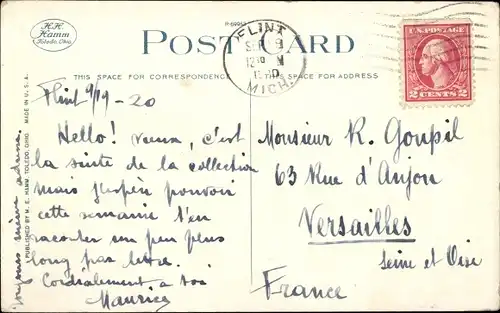 H.H. Hamm
Toledo, Ohio.
POST CARD
FLINT
SEP 19
12 30 M
1920
MICH.
U.S. POSTAGE
2 CENTS 2
THIS SPACE FOR CORRESPONDENCE
THIS SPACE FOR ADDRESS
PUBLISHED BY H. E. HAMM, TOLEDO, OHIO. MADE IN U. S. A.
Flint 9/19-20
Hello! vieux, c'est
la suite de la collection
mais j'espère pouvoir
cette semaine t'en
raconter un peu plus
long par lettre.
Cordialement à toi
Maurice
toujours même adresse
Monsieur R. Goupil
63 Rue d'Anjou
Versailles
Seine et Oise
France